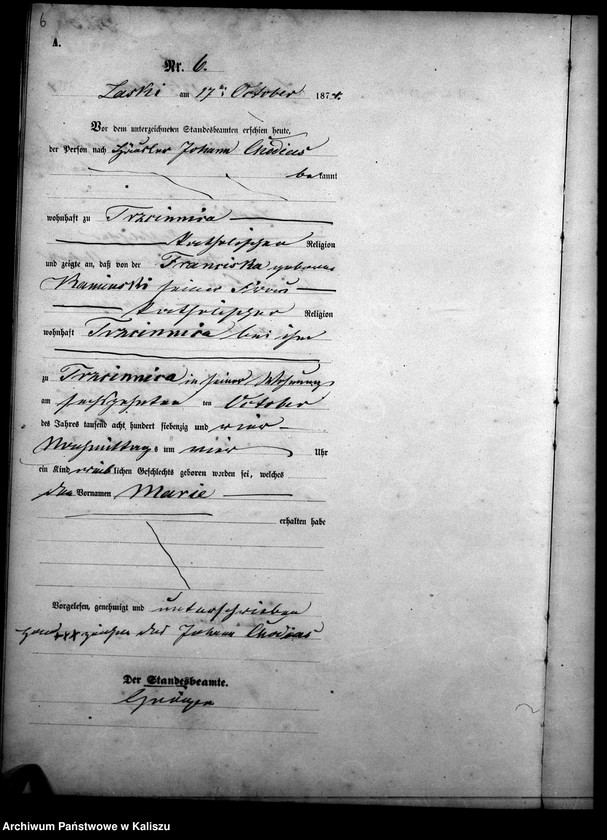 6
A.
Nr. 6.
Laski am 17ten October 1874.
Vor dem unterzeichneten Standesbeamten erschien heute,
der Person nach Häusler Johann
bekannt
wohnhaft zu Trzcinnica
katholischen Religion
und zeigte an, daß von der Franciska geborene
Kaminski seiner Frau
katholischer Religion
wohnhaft Trzcinnica bei ihm
zu Trzcinnica in seiner Wohnung
am sechszehnten ten October
des Jahres tausend acht hundert siebenzig und vier
Nachmittags um vier Uhr
ein Kind weiblichen Geschlechts geboren worden sei, welches
den Vornamen Marie
erhalten habe
Vorgelesen, genehmigt und unterschrieben
Hand +++ zeichen des Johann
Der Standesbeamte.
Archiwum Państwowe w Kaliszu